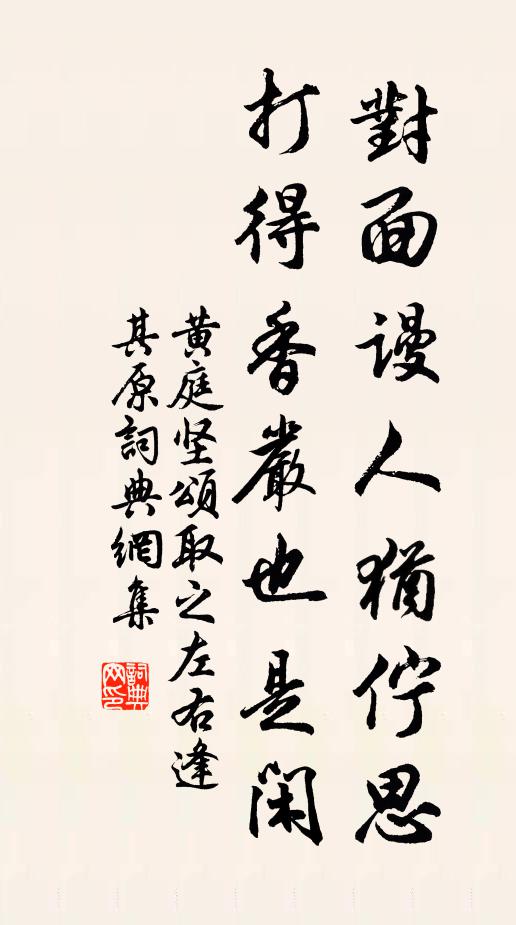 對面謾人猶佇思
打得香嚴也是閑
黄庭坚頌取之左右逢
其原詞典網集
詞典網印